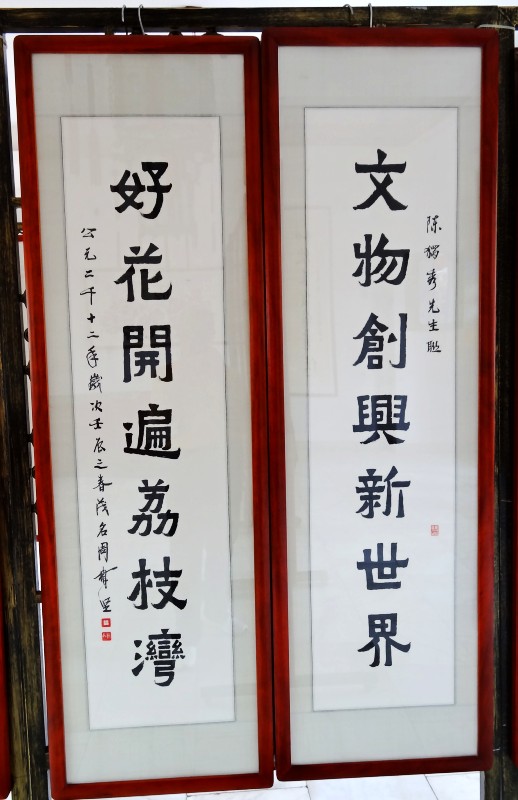 文物創興新世界
陈獨秀先生联
好花開遍荔枝灣
公元二千十二年歲次壬辰之春茂名周